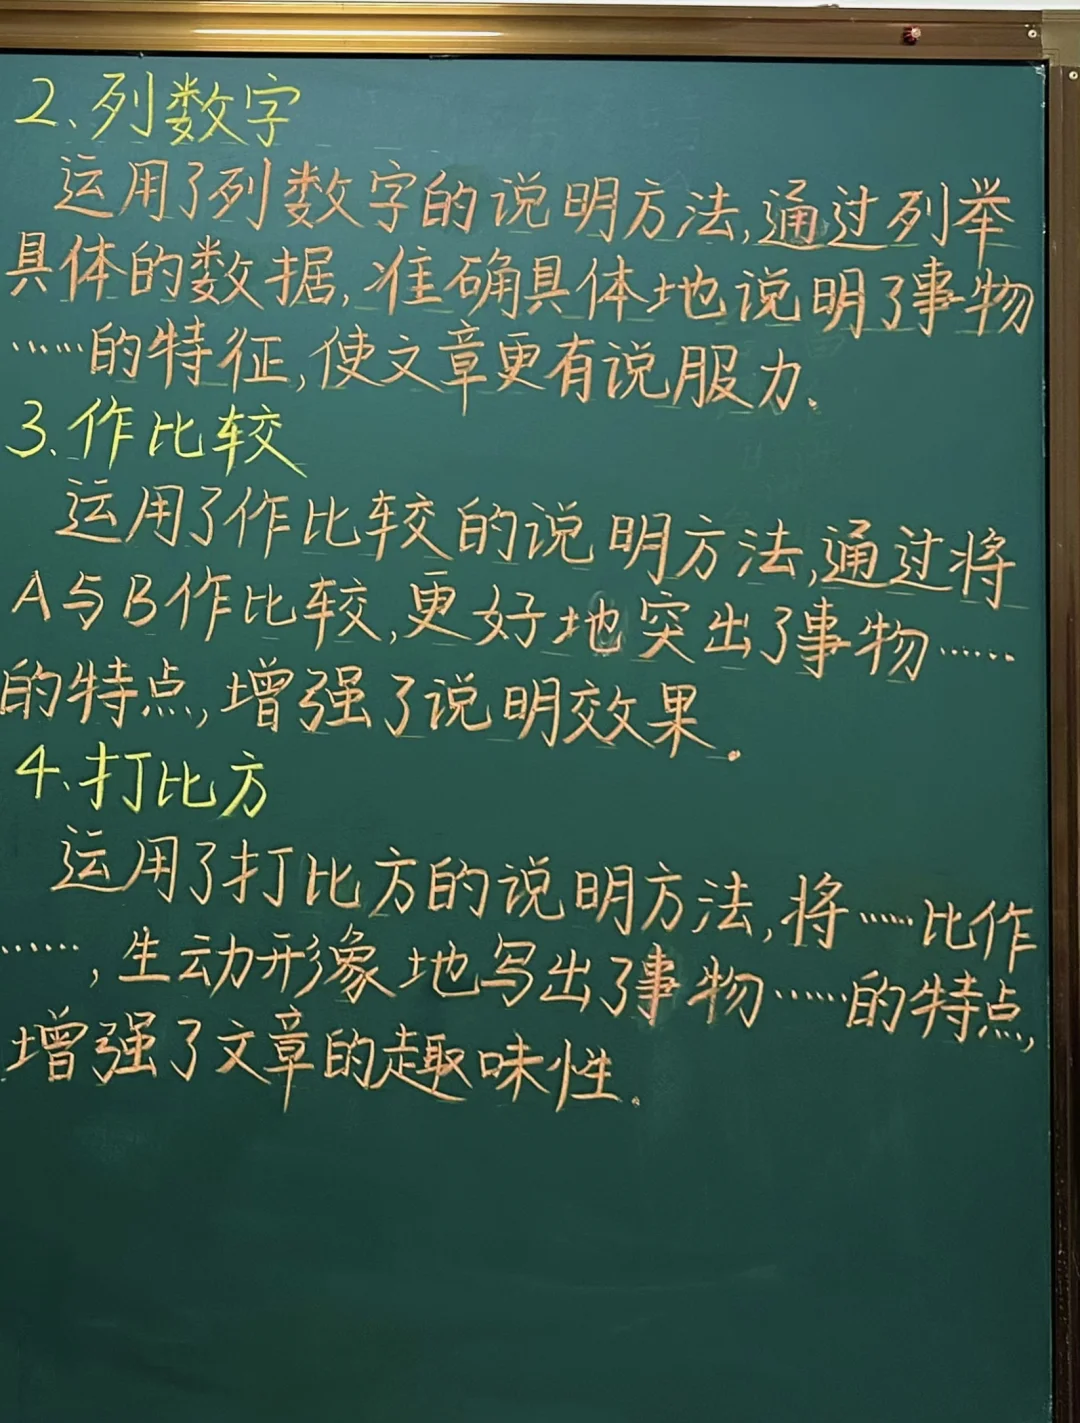 2、列数字
运用了列数字的说明方法,通过列举
具体的数据,准确具体地说明了事物
……的特征,使文章更有说服力。
3、作比较
运用了作比较的说明方法,通过将
A与B作比较,更好地突出了事物……
的特点,增强了说明效果。
4、打比方
运用了打比方的说明方法,将……比作
……,生动形象地写出了事物……的特点,
增强了文章的趣味性。